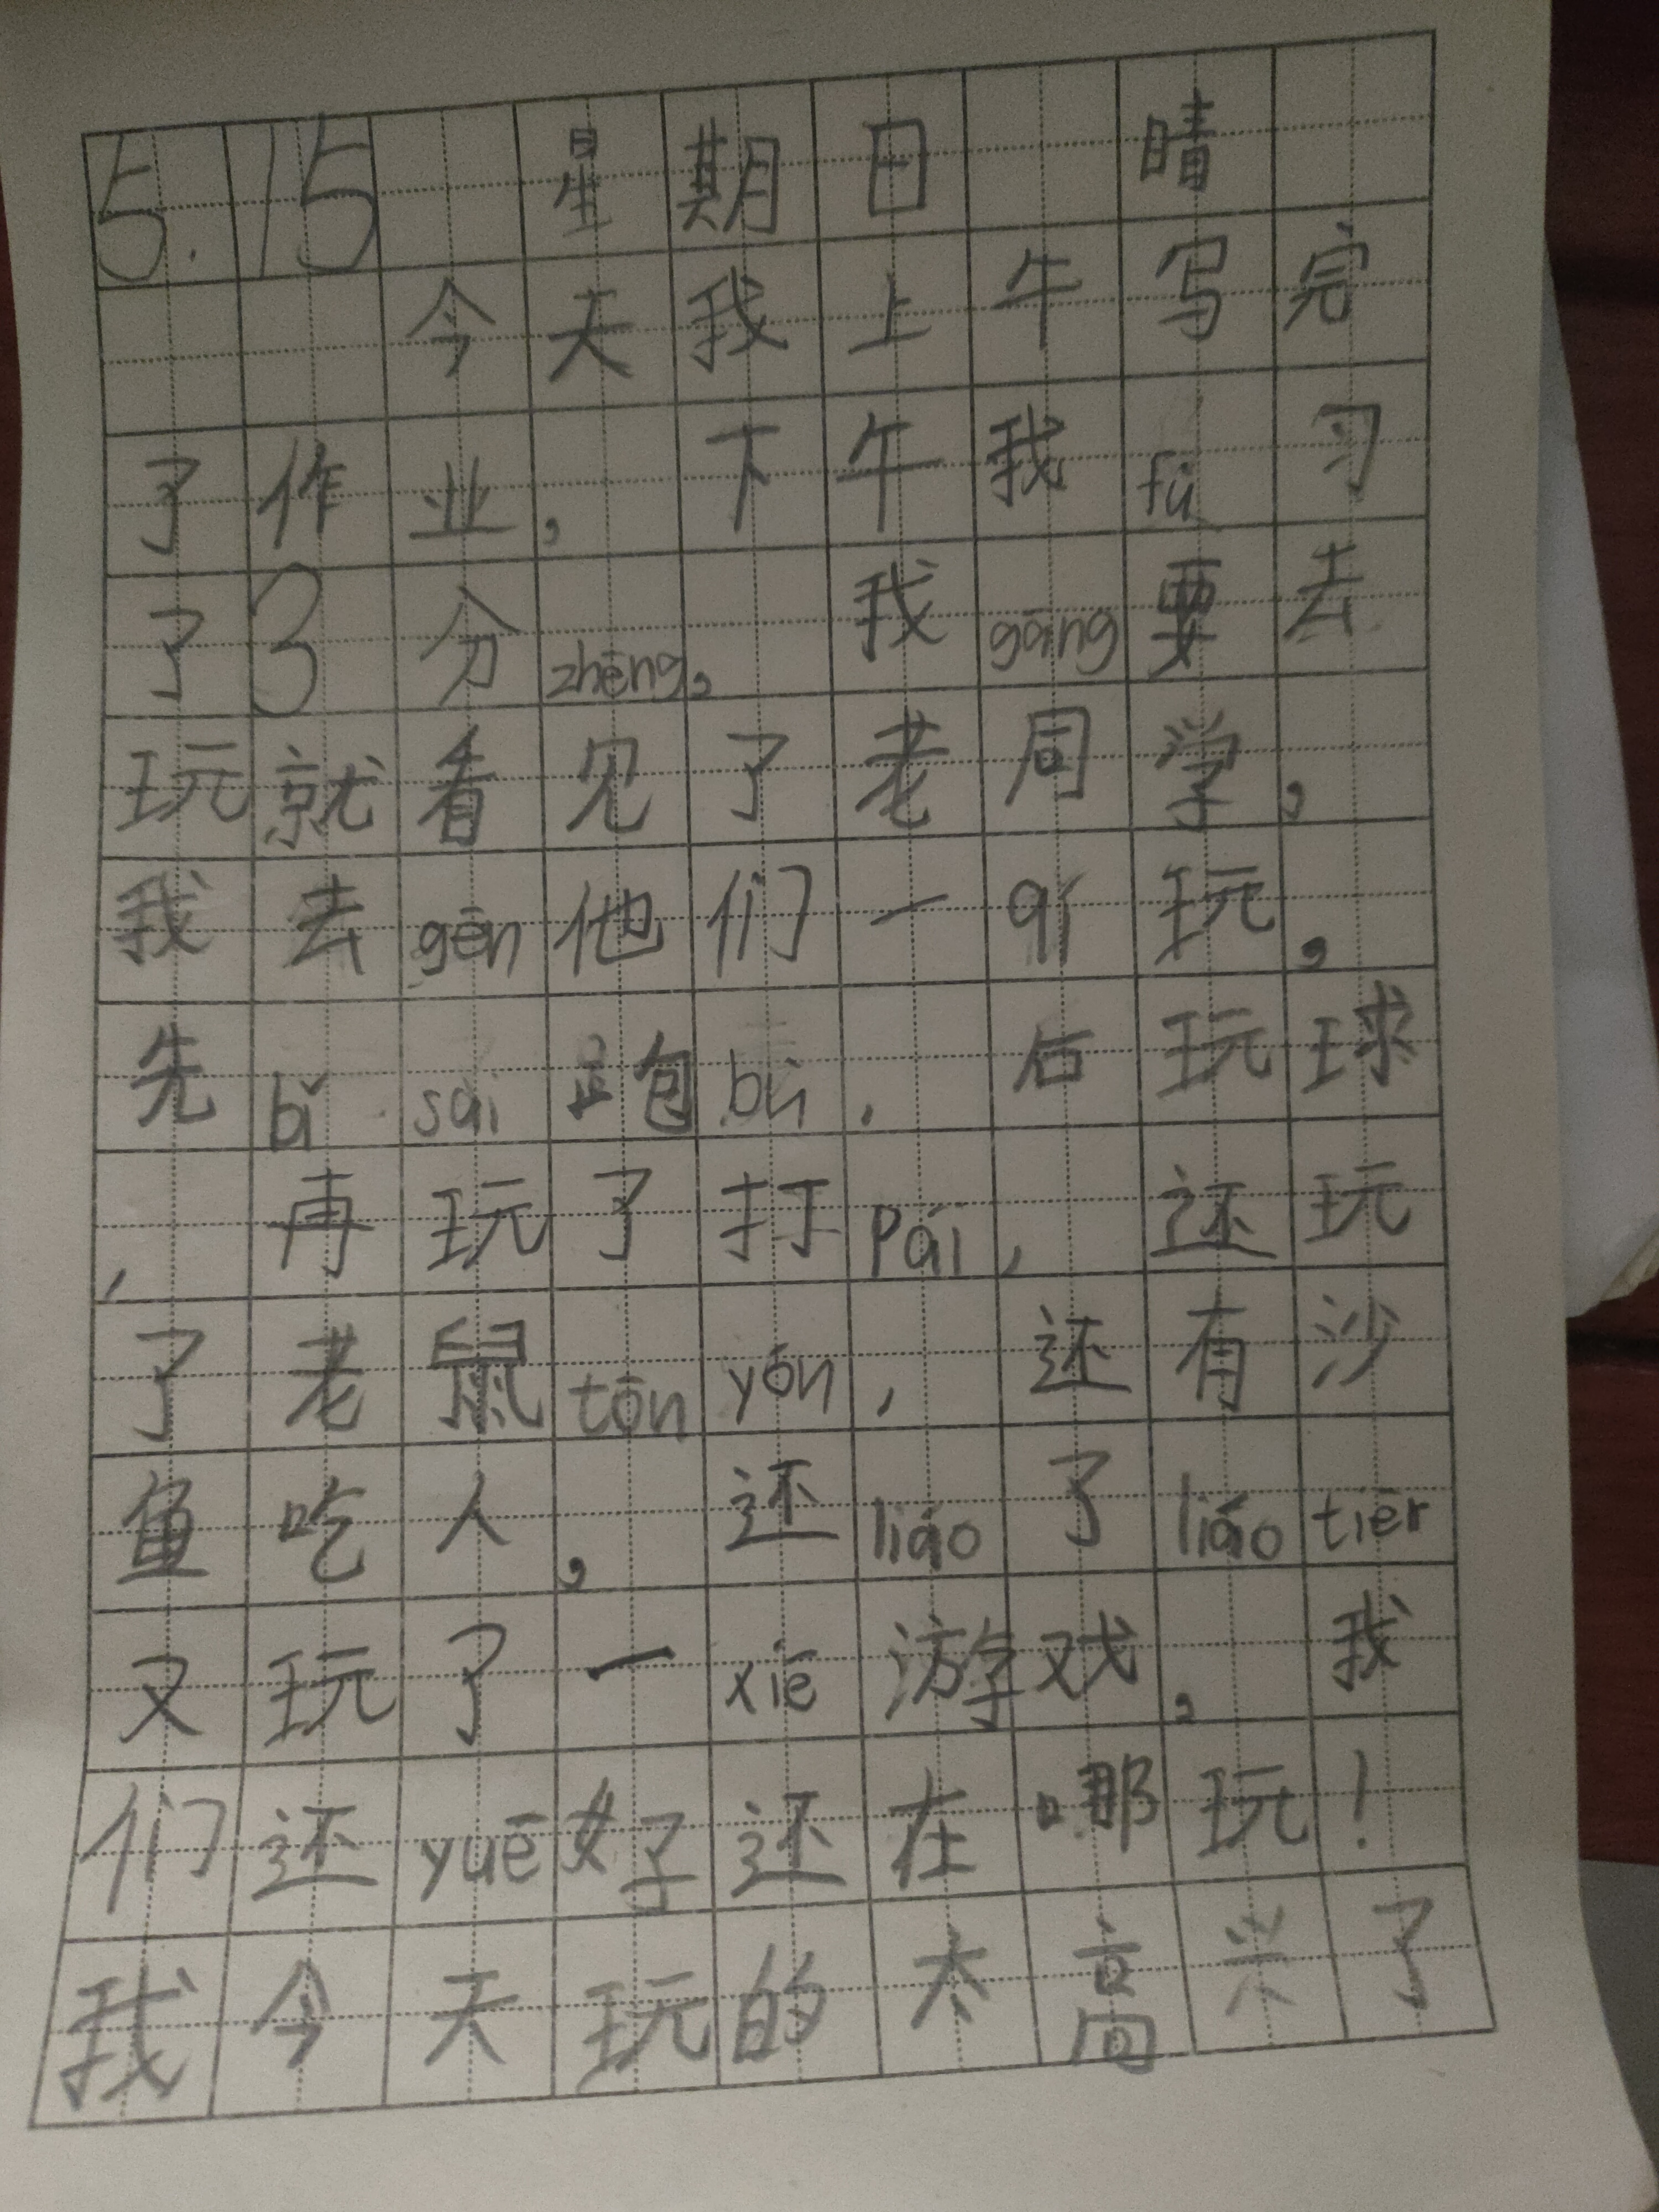 5.15 星期日 晴
今天我上午写完
了作业，下午我fù习
了3分zhēng。我gāng要去
玩就看见了老同学，
我去gēn他们一qǐ玩。
先bǐ sài跑bù，后玩球
，再玩了打pái，还玩
了老鼠tōu yóu，还有沙
鱼吃人。还liáo了liáo tiēr
又玩了一xiē游戏。我
们还yuē好还在哪玩！
我今天玩的太高兴了